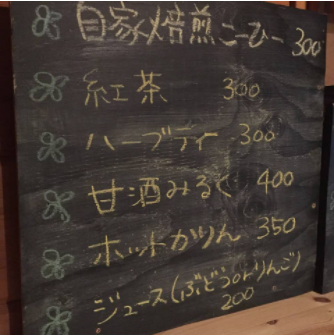 自家焙煎こーひー 300
紅茶 300
ハーブティ 300
甘酒みるく 400
ホットかりん 350
ジュース(ぶどうorりんご)
200